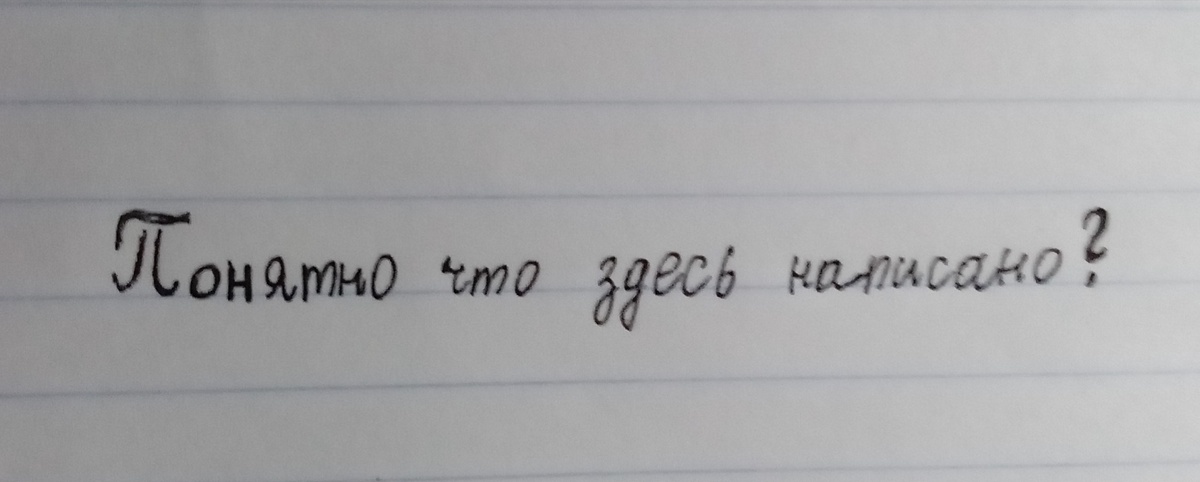 Понятно что здесь написано?